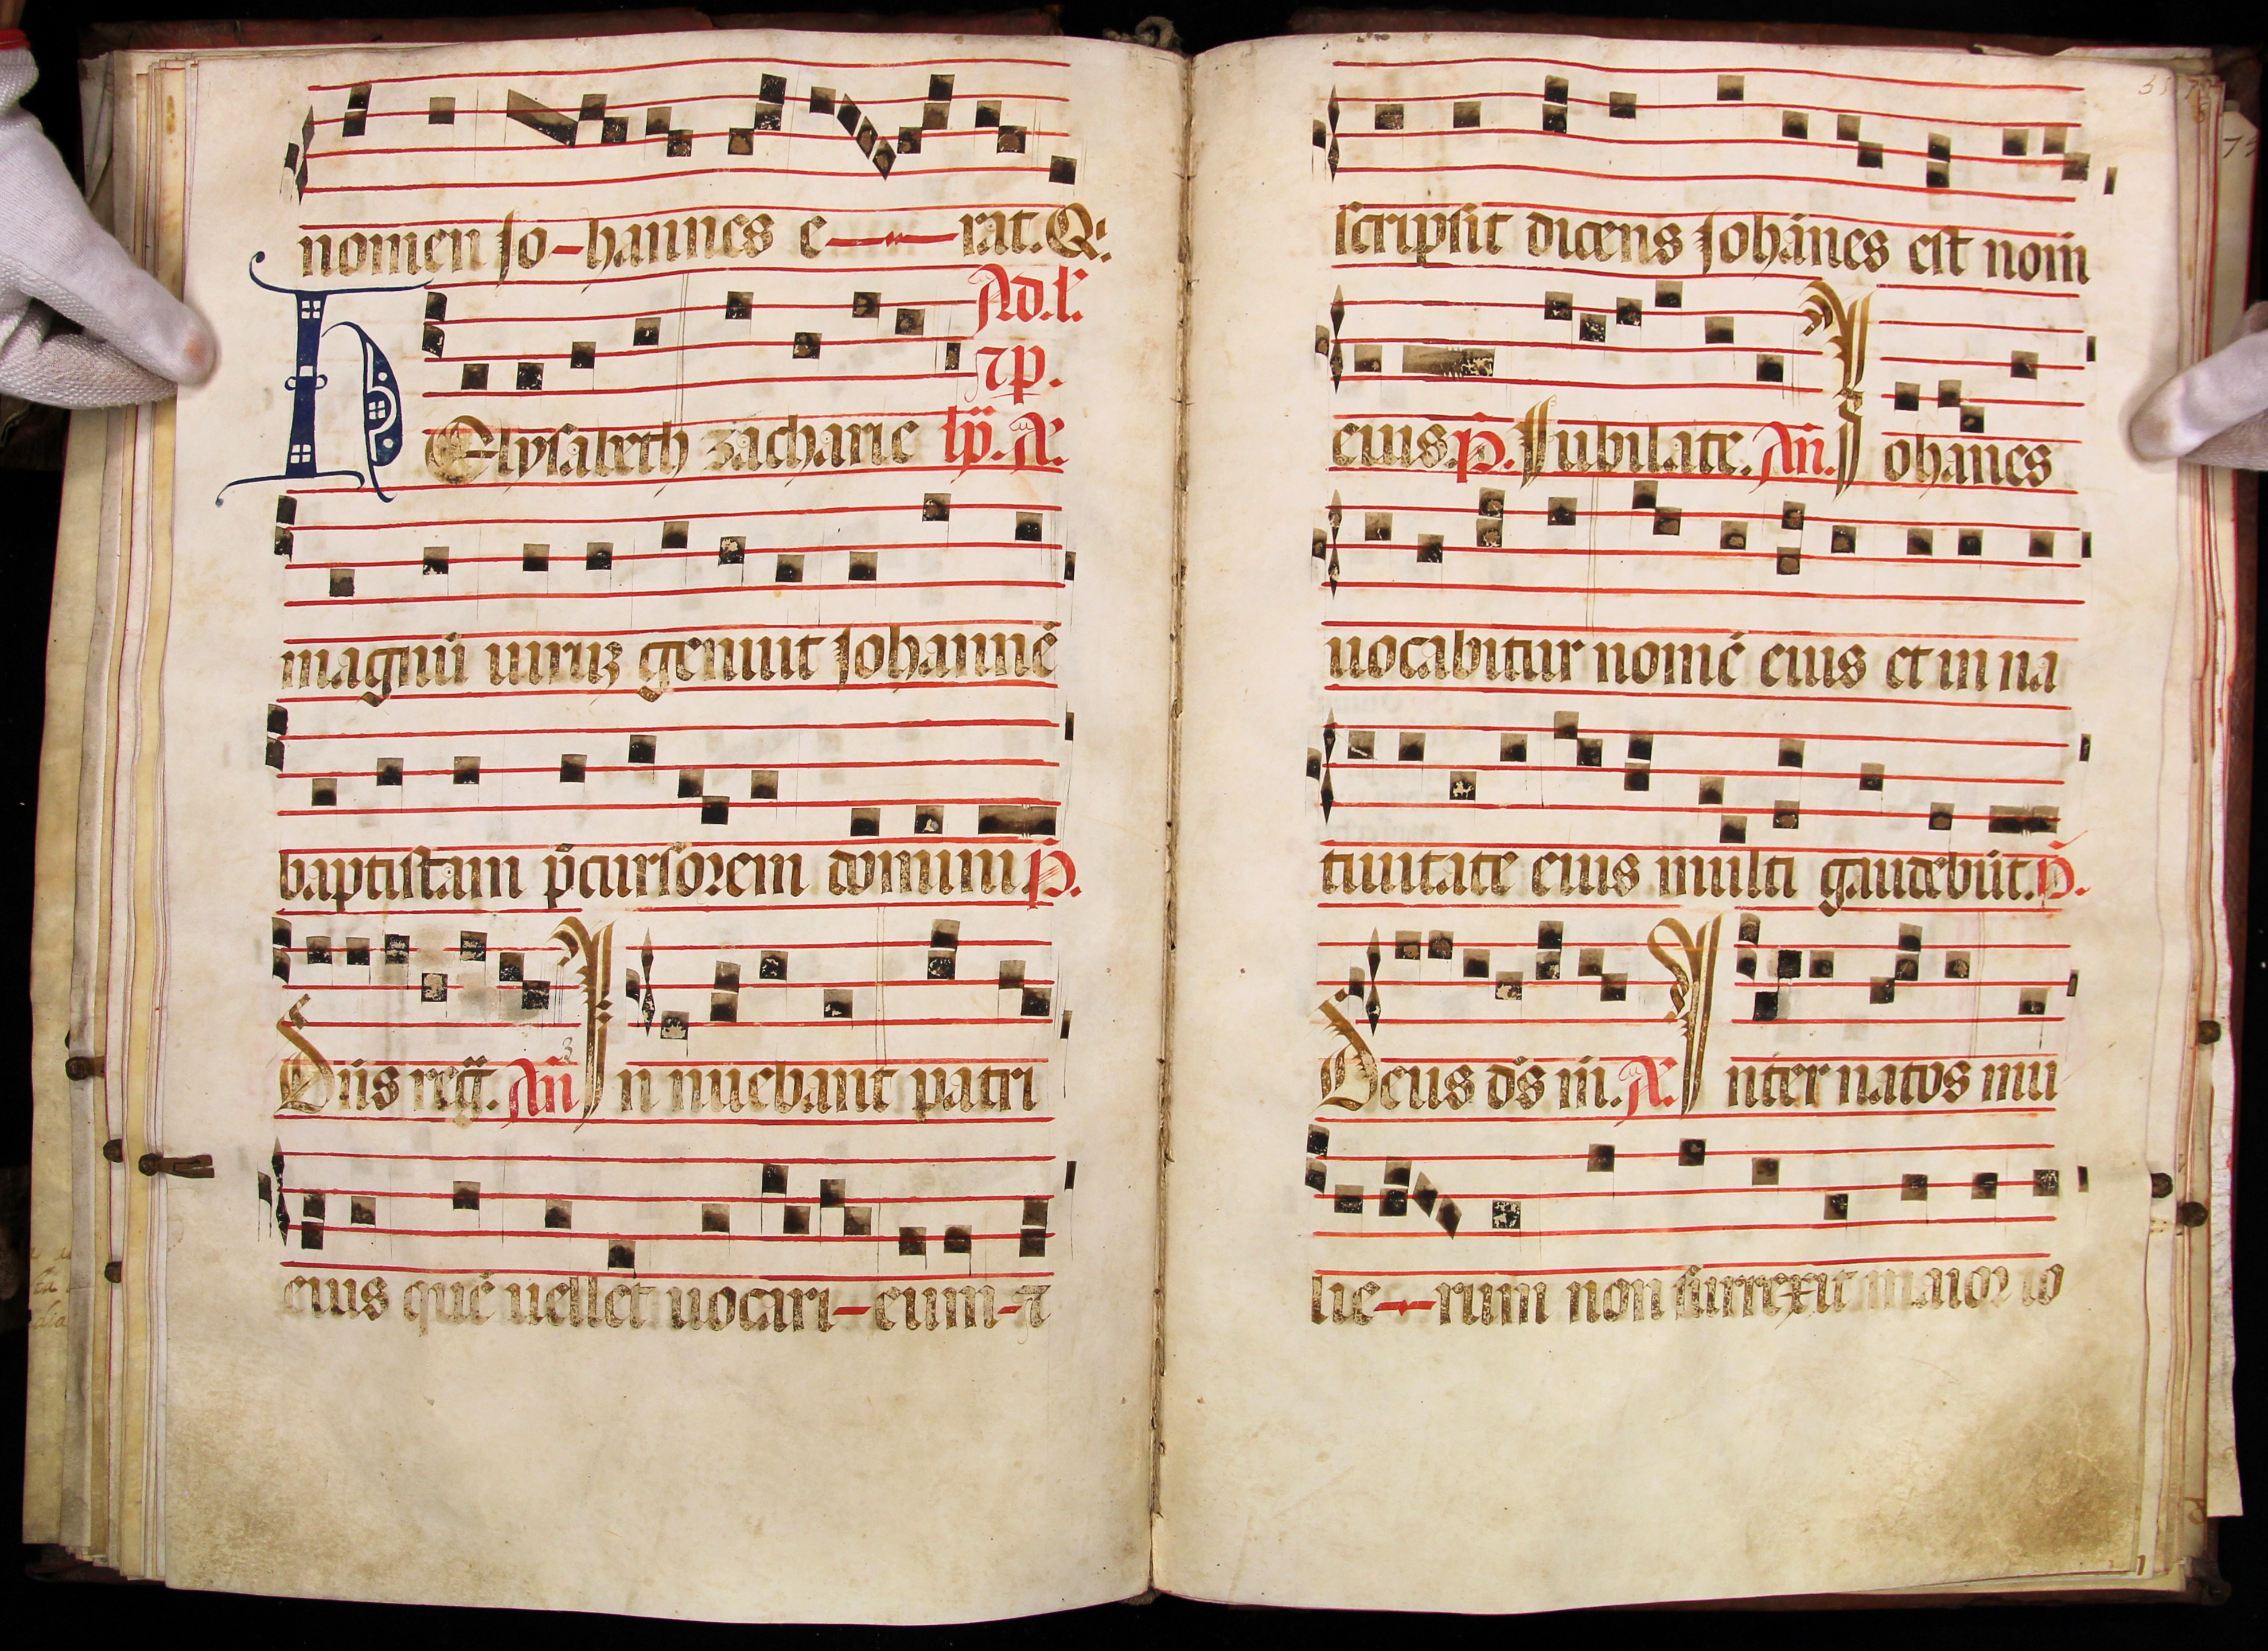 nomen Jo-hannes e—rat. Q
Ad. l'.
⁊ p.
Elysabeth zacharie
magnū uiruꝫ genuit Johannē
baptistam p̄cursorem domini p̄.
Dn̄s reḡ. An̄ In nuebant patri
eius quē uellet uocari-eum-⁊
scripsit dicens Johānes est nom̄
eius. p̄. Jubilate. An̄. Johānes
uocabitur nomē eius et in na
tiuitate eius multi gaudebūt. p̄.
Deus ds̄ m̄. A. Inter natos mu
lie-rum non surrexit maior io